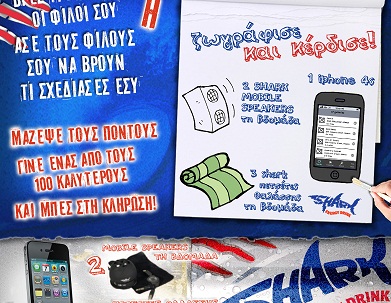 ΟΙ ΦΙΛΟΙ ΣΟΥ
Η
ΑΣΕ ΤΟΥΣ ΦΙΛΟΥΣ
ΣΟΥ ΝΑ ΒΡΟΥΝ
ΤΙ ΣΧΕΔΙΑΣΕΣ ΕΣΥ
ΜΑΖΕΨΕ ΤΟΥΣ ΠΟΝΤΟΥΣ
ΓΙΝΕ ΕΝΑΣ ΑΠΟ ΤΟΥΣ
100 ΚΑΛΥΤΕΡΟΥΣ
ΚΑΙ ΜΠΕΣ ΣΤΗ ΚΛΗΡΩΣΗ!
ζωγράφισε
και κέρδισε!
2 SHARK
MOBILE
SPEAKERS
τη βδομάδα
1 iphone 4s
3 shark
πετσέτες
θαλάσσης
τη βδομάδα
SHARK
2
MOBILE SPEAKERS
ΤΗ ΒΔΟΜΑΔΑ
SHARK
DRINK